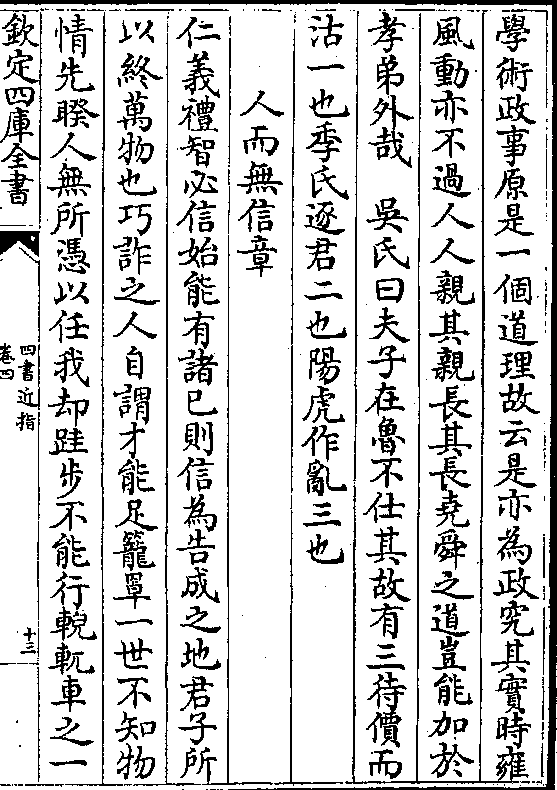 學術政事原是一個道理故云是亦為政究其實時雍
風動亦不過人人親其親長其長堯舜之道豈能加於
孝弟外哉　吳氏曰夫子在魯不仕其故有三待價而
沽一也季氏逐君二也陽虎作亂三也
人而無信章
仁義禮智必信始能有諸已則信為告成之地君子所
以終萬物也巧詐之人自謂才能足籠罩一世不知物
情先睽人無所憑以任我却跬步不能行輗軏車之一
欽定四庫全書
四書近指
卷四
十三